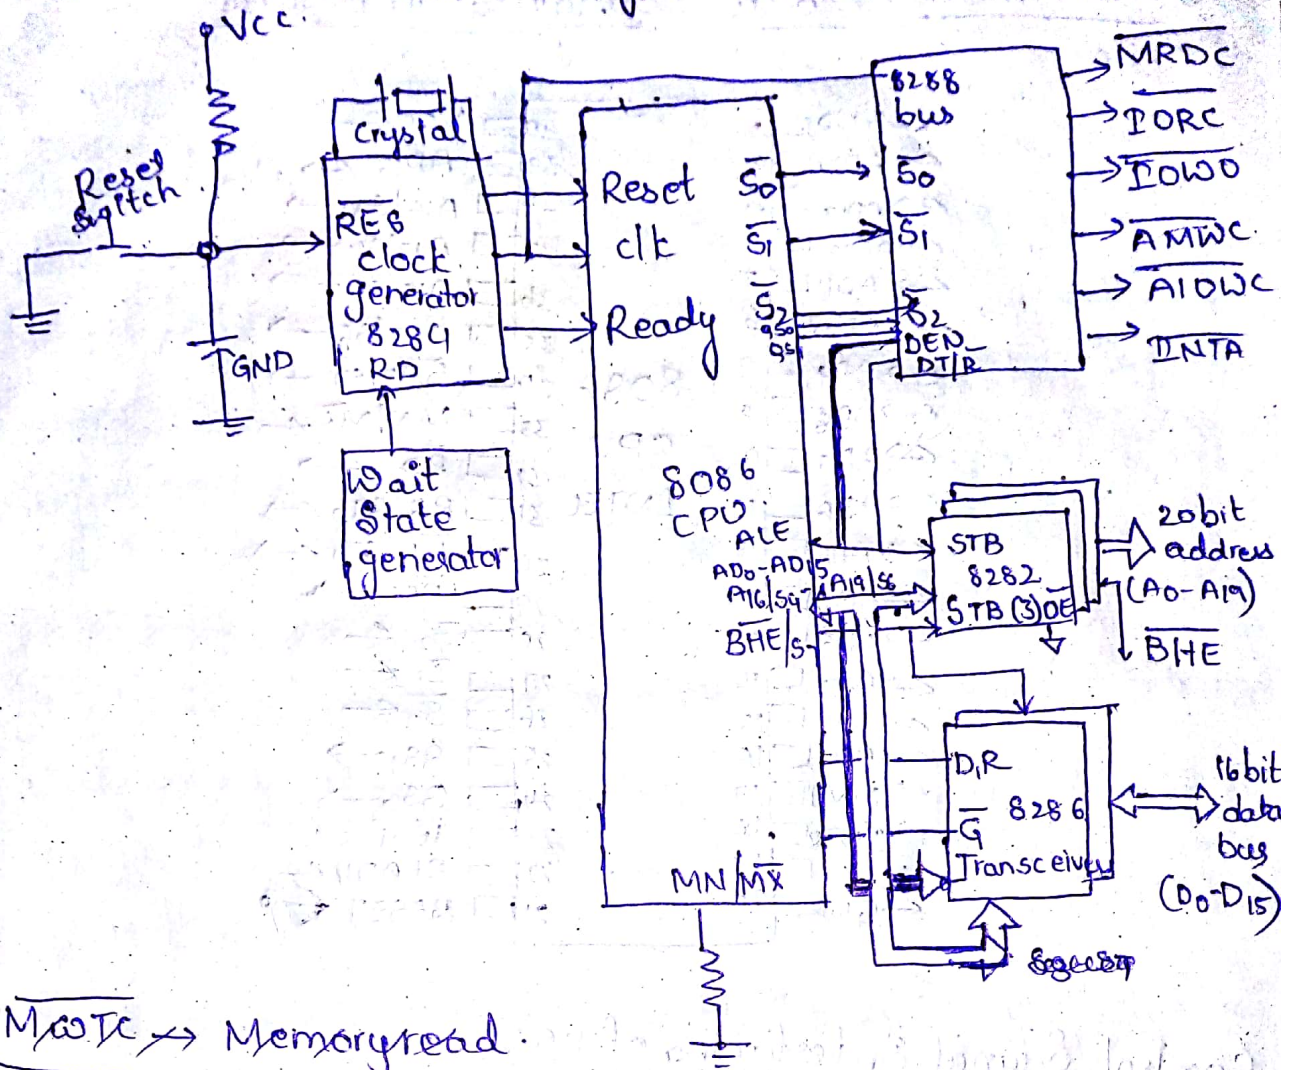 Vcc.
Reset
Switch
Crystal
R̅E̅S̅
clock
generator
8284
RD
GND
Wait
State
generator
Reset
clk
Ready
S̅0
S̅1
S̅2
QS0
QS1
8086
CPU
ALE
AD0-AD15
A16/S4-
A19/S6
B̅H̅E̅/S7
MN/M̅X̅
8288
bus
S̅0
S̅1
S̅2
DEN
DT/R̅
M̅R̅D̅C̅
I̅O̅R̅C̅
I̅O̅W̅O̅
A̅M̅W̅C̅
A̅I̅O̅W̅C̅
I̅N̅T̅A̅
STB
8282
STB(3) O̅E̅
20bit
address
(A0-A19)
B̅H̅E̅
D,R
8286
G̅
Transceiver
16bit
data
bus
(D0-D15)
M̅W̅T̅C̅ → Memoryread.